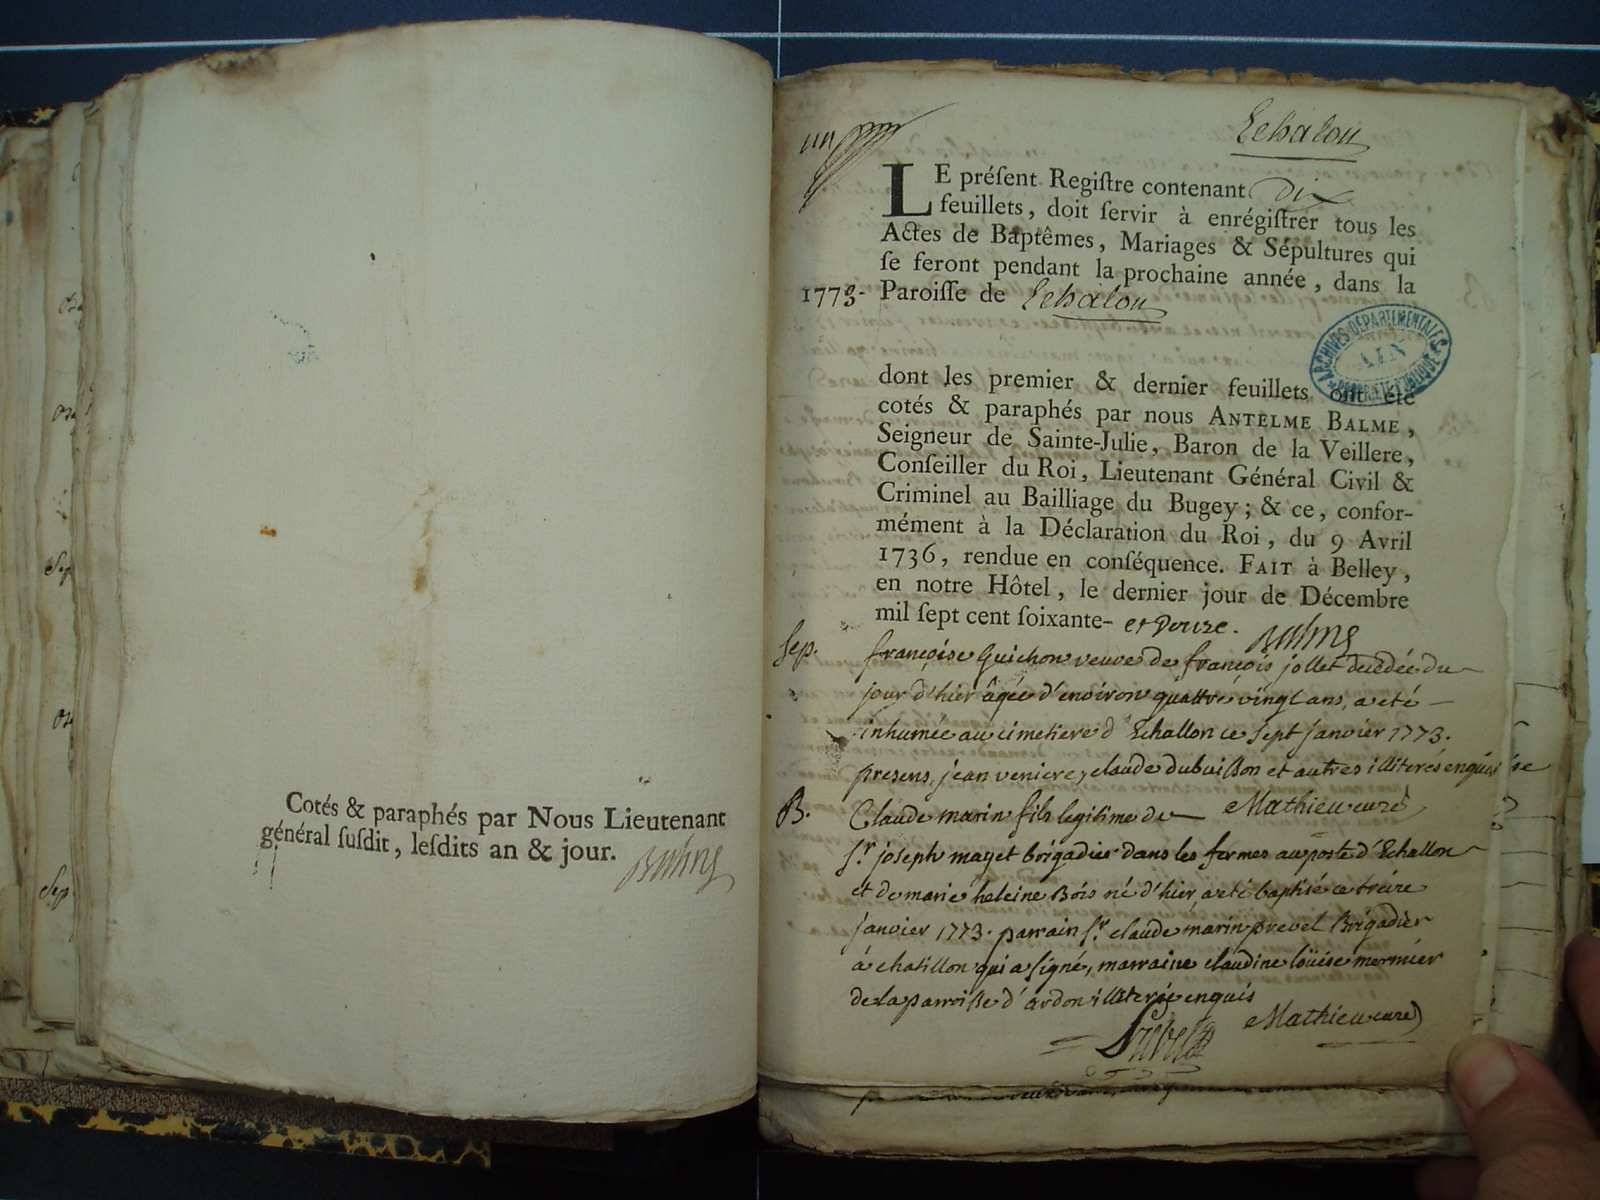 Cotés & paraphés par Nous Lieutenant
général suſdit, leſdits an & jour.
un
Echalou
LE préſent Regiſtre contenant dix
feuillets, doit ſervir à enrégiſtrer tous les
Actes de Baptêmes, Mariages & Sépultures qui
ſe feront pendant la prochaine année, dans la
1773- Paroiſſe de Echalou
ARCHIVES DÉPARTEMENTALES
AIN
dont les premier & dernier feuillets ont été
cotés & paraphés par nous ANTELME BALME,
Seigneur de Sainte-Julie, Baron de la Veillere,
Conſeiller du Roi, Lieutenant Général Civil &
Criminel au Bailliage du Bugey; & ce, confor-
mément à la Déclaration du Roi, du 9 Avril
1736, rendue en conſéquence. FAIT à Belley,
en notre Hôtel, le dernier jour de Décembre
mil ſept cent ſoixante- et Douze.
Sep. françoise Guichon veuve de françois jollet decedée du
jour d'hier âgée d'environ quattre vingt ans, a eté
inhumée au cimetiere d'Echallon ce sept janvier 1773.
presens, jean veniere, claude dubuisson et autres illiterés enquis
B. Claude marin fils legitime de Mathieu curé
Sr. joseph mayet brigadier dans les fermes au poste d'Echallon
et de marie heleine Bois né d'hier, a eté baptisé ce treize
janvier 1773. parrain Sr. claude marin prevel Brigadier
à chatillon qui a signé, marraine claudine loüise mermier
de la parroisse d'ardon illiterée enquis
Prevel Mathieu curé
Sep
Sep.